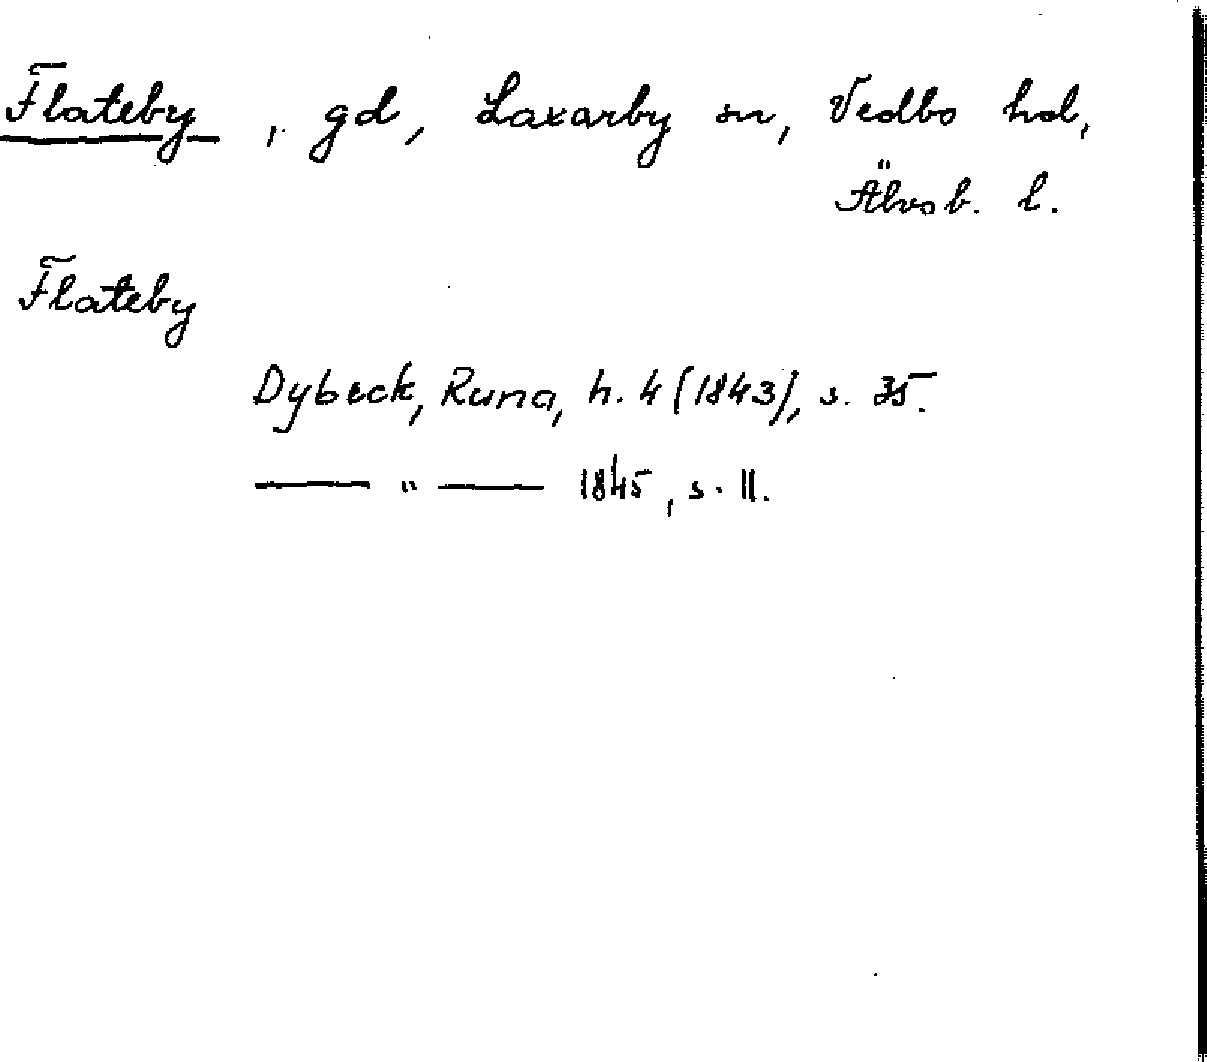 Flateby, gd, Laxarby sn, Vedbo hd,
Älvsb. l.
Flateby
Dybeck, Runa, h. 4 (1843), s. 35.
— " — 1845, s. 11.